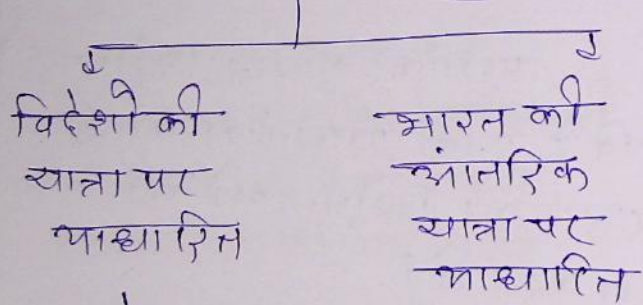 विदेशो की
यात्रा पर
आधारित
भारत की
आंतरिक
यात्रा पर
आधारित